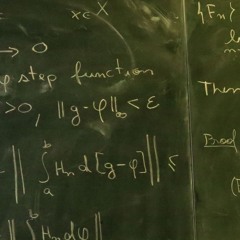 x∈X
→ 0
φ step function
>0, ‖g-φ‖∞ < ε
‖∫ₐᵇ Hₙ d[g-φ]‖ ≤
‖∫ᵇ Hₙ dφ‖
{Fₙ}
Then
Proof